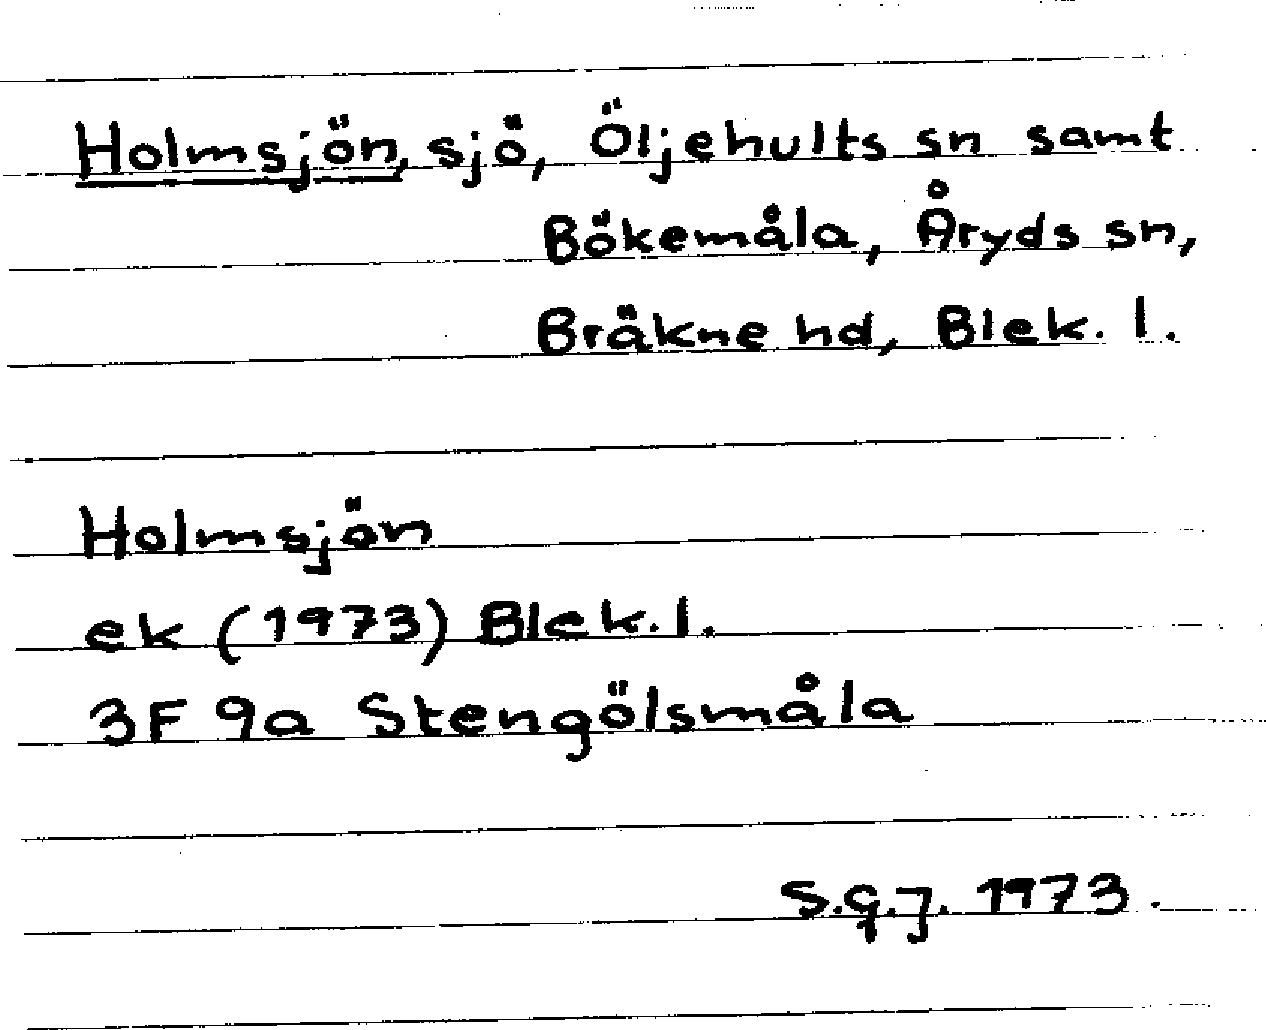 Holmsjön, sjö, Öljehults sn samt
Bökemåla, Åryds sn,
Bräkne hd, Blek. l.
Holmsjön
ek (1973) Blek. l.
3F 9a Stengölsmåla
S.g.J. 1973.